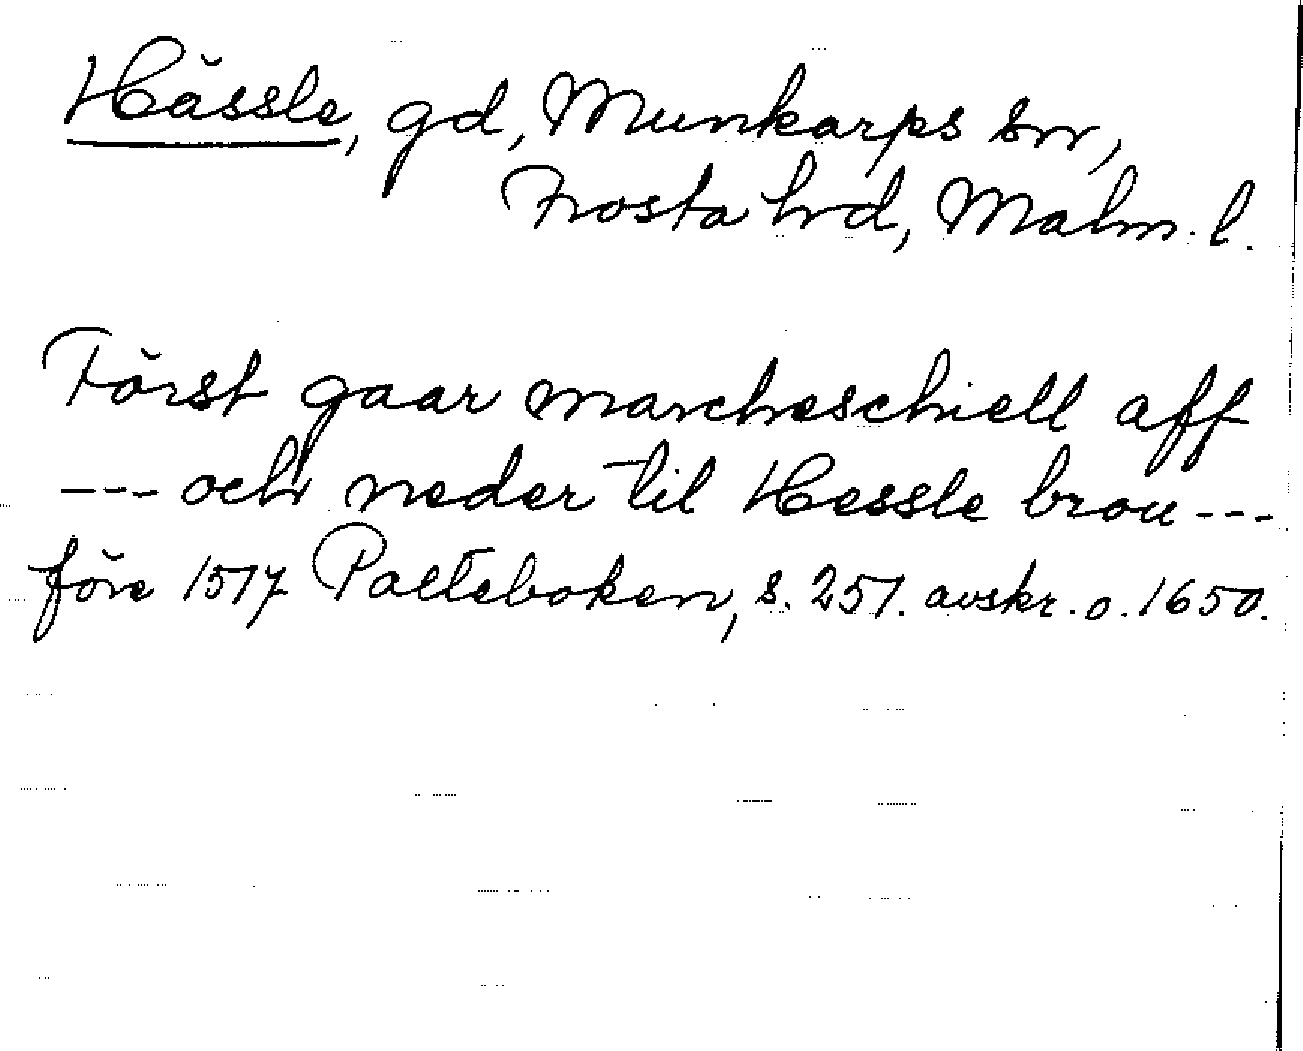 Hässle, gd, Munkarps sn,
Frosta hrd, Malm. l.
Först gaar marcheschiell aff
--- och neder til Hessle brou ---
före 1517 Palteboken, s. 251. avskr. o. 1650.